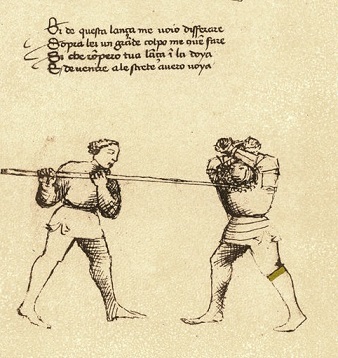 Di de questa lança me voio differare
Sopra lei un grãde colpo me quẽ fare
Si che rõpero tua lãça ĩ la doya
E de venire a le strete averò voya